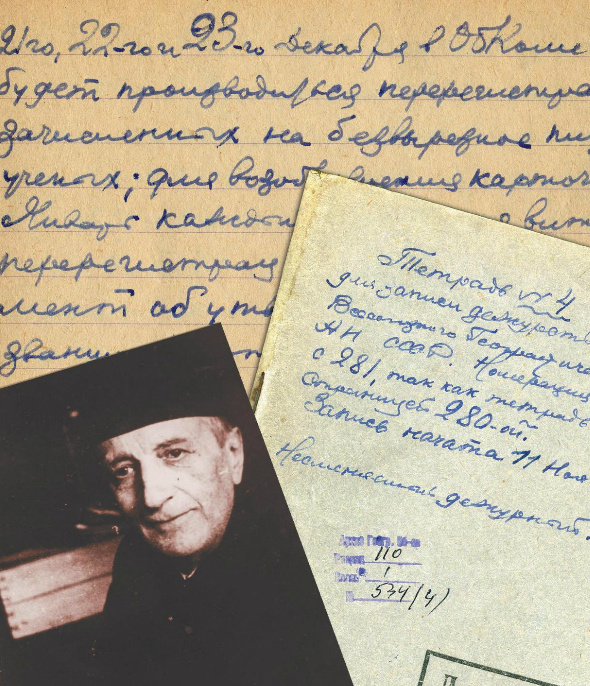 21го, 22-го и 23-го декабря в Обкоме
будет производиться перерегистра
зачисленных на безвыревное пи
ученых; для возоб вления карточ
Январь каждый
перерегистрац
мент об ут
звани
Тетрадь № 4
для записи дежурств
Всесоюзного Географиче
АН СССР. Нумерация
с 281, так как тетрадь
страницей 280-ой.
Запись начата 11 Ноя
Несменяемый дежурный.
Архив Геогр. об-ва
Разряд 110
Опись 1
№ 534(4)